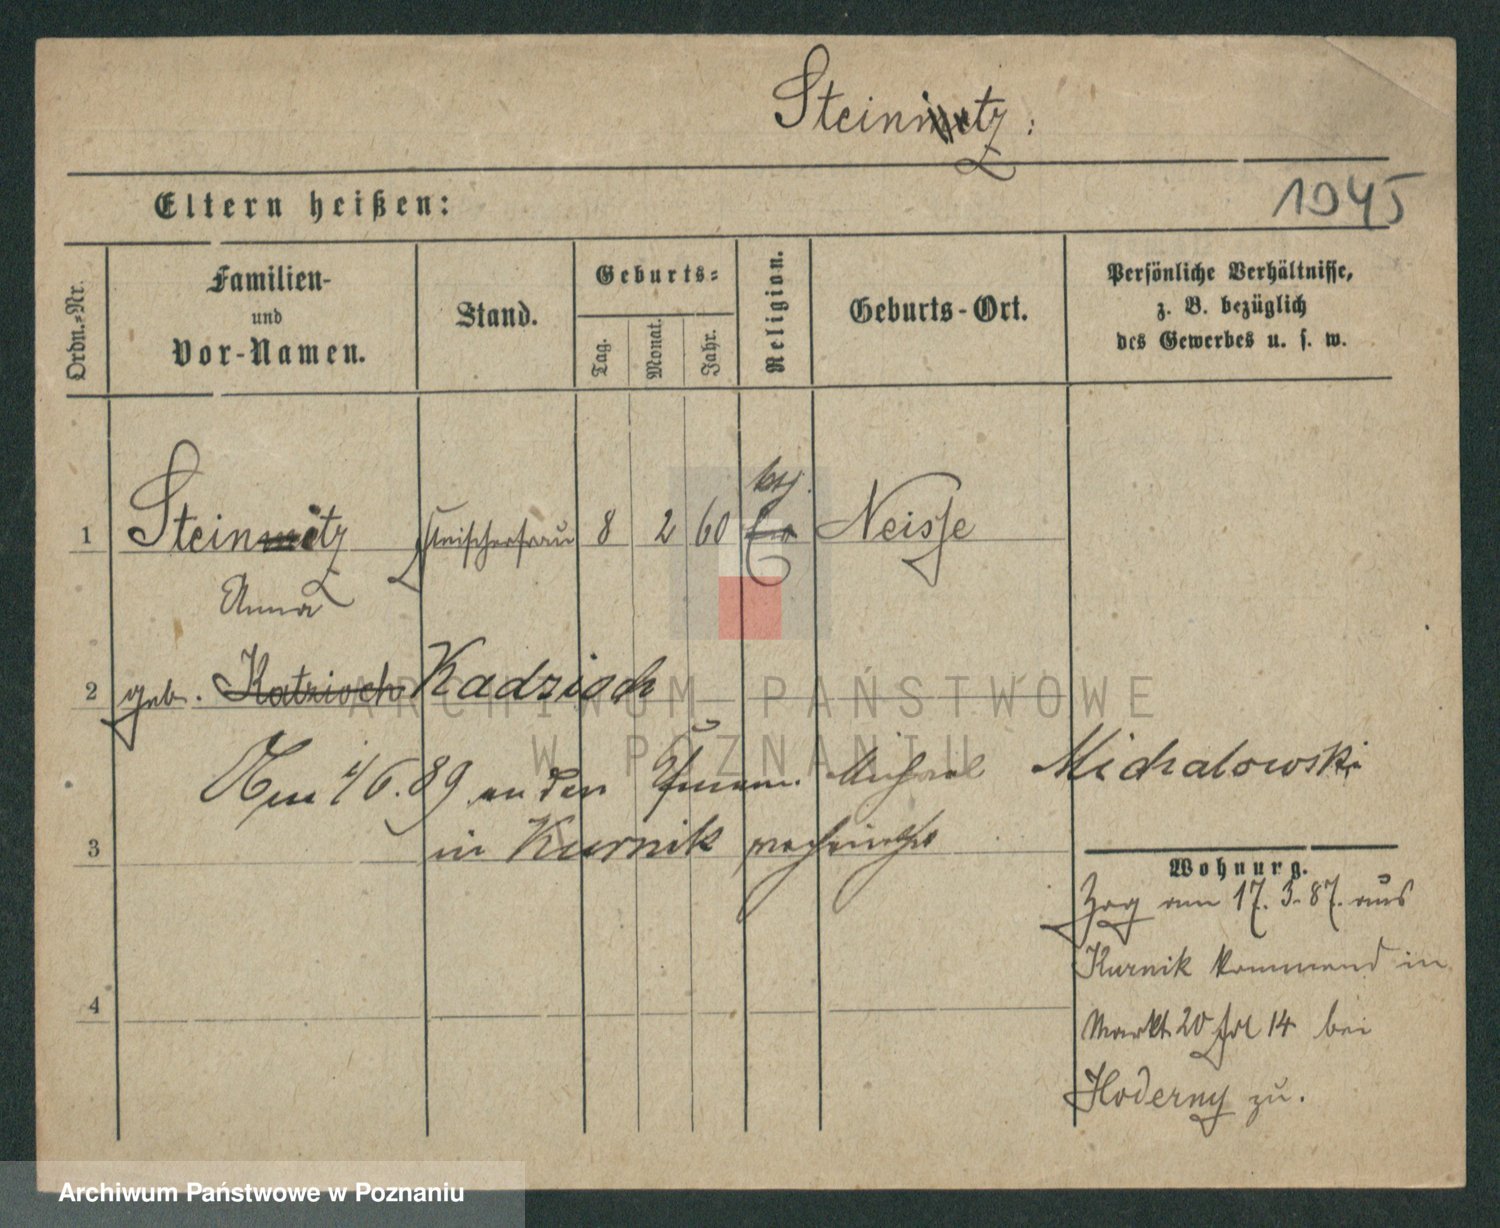 Steinitz:
1945
Eltern heißen:
Ordn.-Nr.
Familien-
und
Vor-Namen.
Stand.
Geburts-
Tag.
Monat.
Jahr.
Religion.
Geburts-Ort.
Persönliche Verhältnisse,
z. B. bezüglich
des Gewerbes u. s. w.
1 Steinitz Fleischerfrau 8 2 60 Neisse
Anna
2 geb. Katzioch Kadzioch
Am 4/6. 89 an den Michael Michalowski
3 in Kurnik verheirathet
Wohnung.
Zog am 17. 3. 87. aus
Kurnik kommend in
Markt 20 14 bei
Hoderny zu.
4
ARCHIWUM PAŃSTWOWE
W POZNANIU
Archiwum Państwowe w Poznaniu